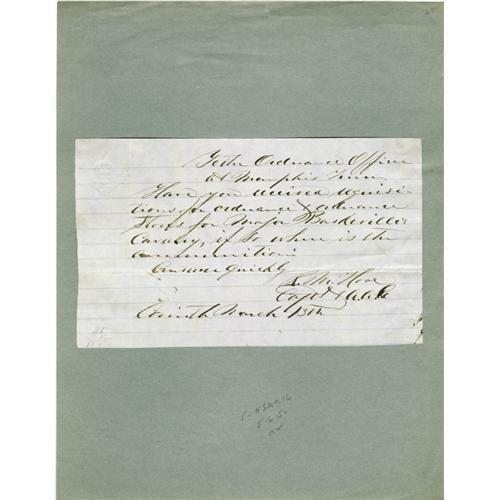 To the Ordnance Officer
at Memphis Tenn
Have you received requisi-
tions for ordnance & ordnance
Stores for Major Baskerville's
Cavalry, if so where is the
ammunition
Answer quickly
Capt & A.A.G
Corinth March 13th